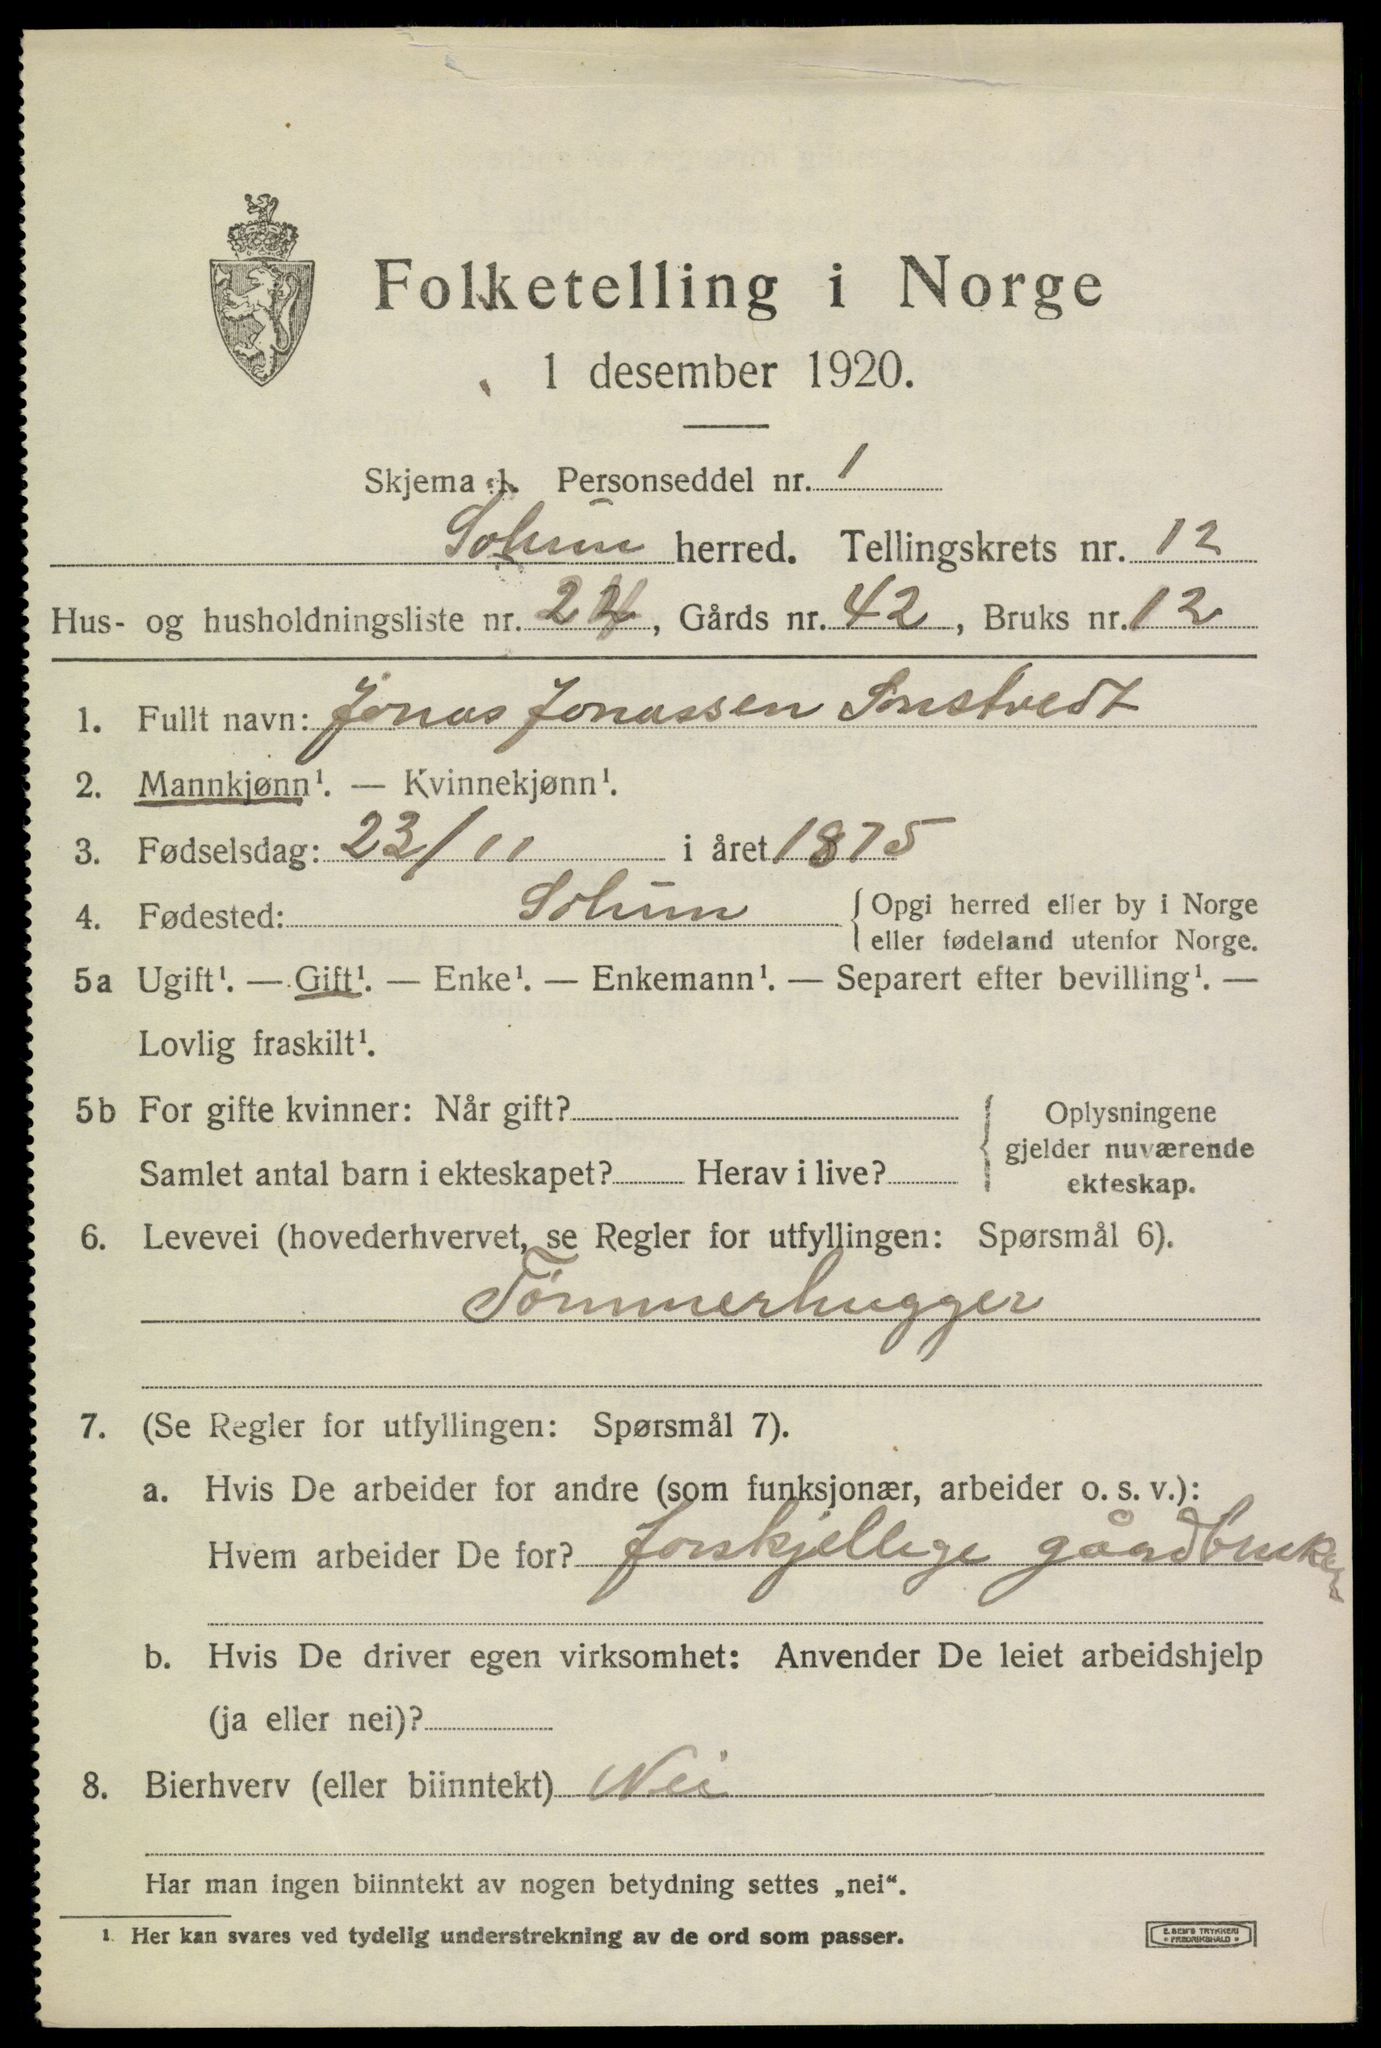 Folketelling i Norge
1 desember 1920.
Skjema 1. Personseddel nr. 1
Solum herred. Tellingskrets nr. 12
Hus- og husholdningsliste nr. 24, Gårds nr. 42, Bruks nr. 12
1. Fullt navn: Jonas Jonassen Snstvedt
2. Mannkjønn¹. — Kvinnekjønn¹.
3. Fødselsdag: 23/11 i året 1875
4. Fødested: Solum { Opgi herred eller by i Norge
eller fødeland utenfor Norge.
5a Ugift¹. — Gift¹. — Enke¹. — Enkemann¹. — Separert efter bevilling¹. —
Lovlig fraskilt¹.
5b For gifte kvinner: Når gift?
Samlet antal barn i ekteskapet? Herav i live?
{ Oplysningene
gjelder nuværende
ekteskap.
6. Levevei (hovederhvervet, se Regler for utfyllingen: Spørsmål 6).
Tömmerhugger
7. (Se Regler for utfyllingen: Spørsmål 7).
a. Hvis De arbeider for andre (som funksjonær, arbeider o. s. v.):
Hvem arbeider De for? forskjellige gårdbruker
b. Hvis De driver egen virksomhet: Anvender De leiet arbeidshjelp
(ja eller nei)?
8. Bierhverv (eller biinntekt) Nei
Har man ingen biinntekt av nogen betydning settes „nei“.
1. Her kan svares ved tydelig understrekning av de ord som passer.
E. SEM'S TRYKKERI
* FREDRIKSHALD *